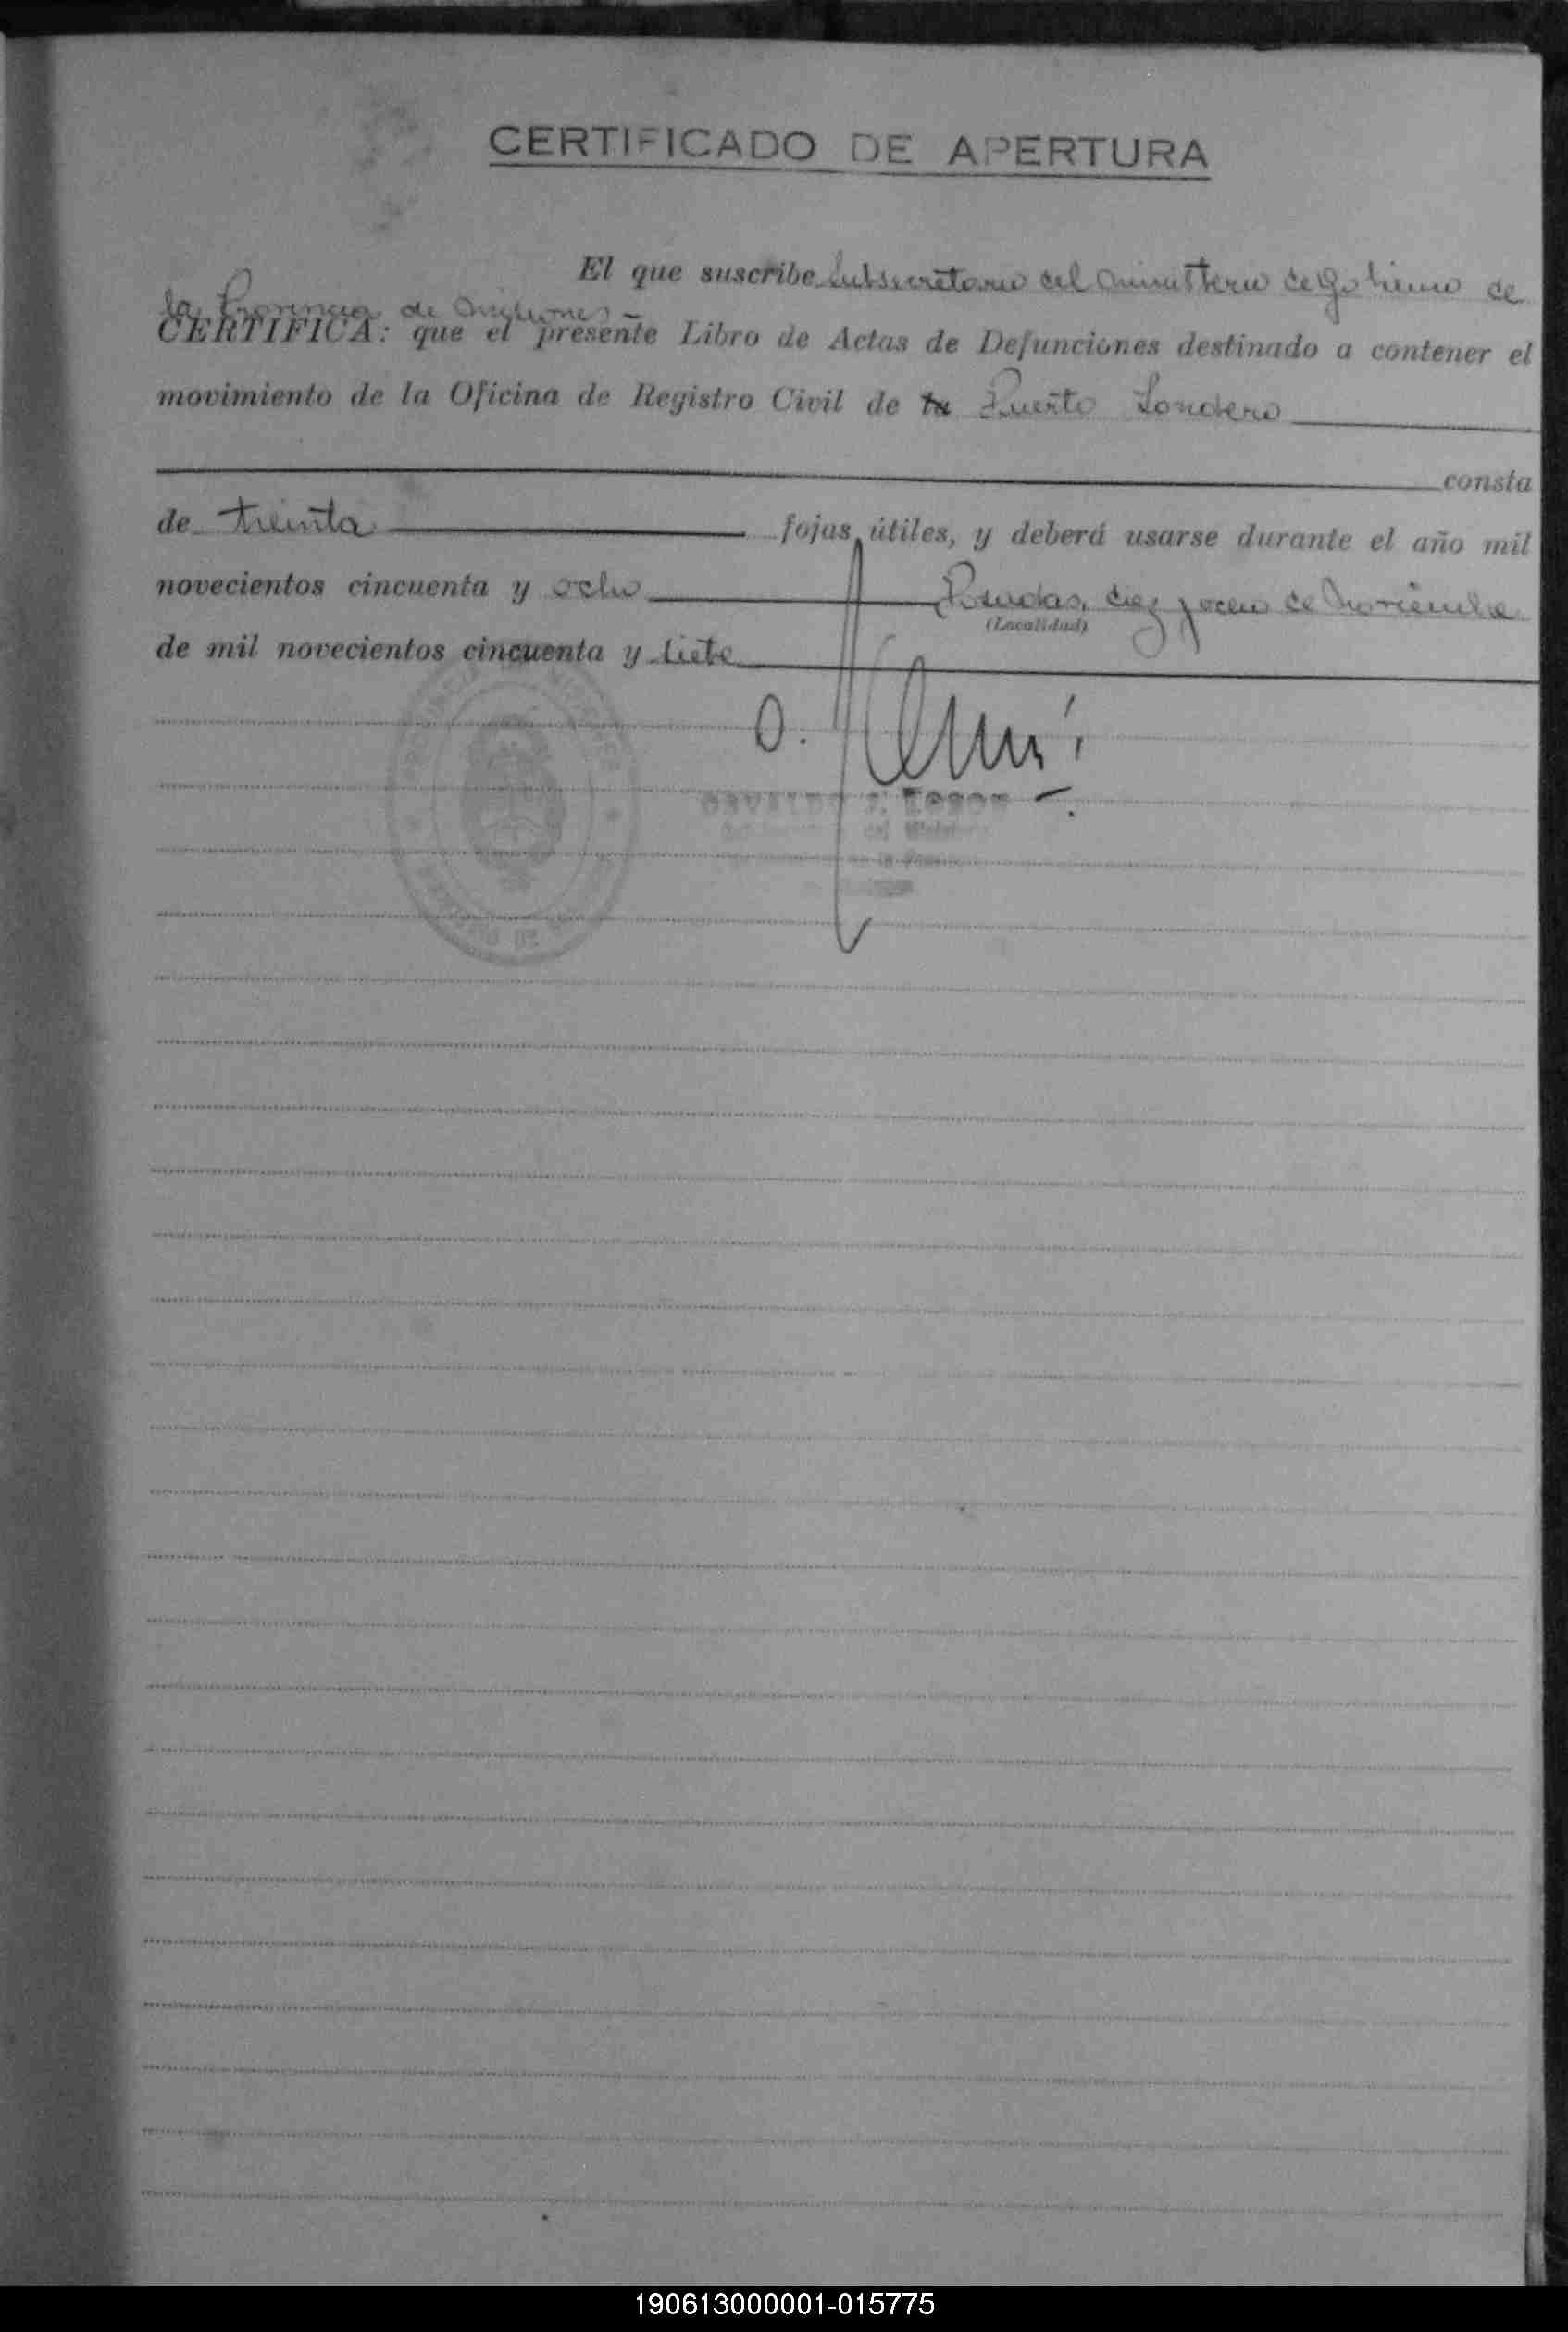 CERTIFICADO DE APERTURA
El que suscribe Subsecretario del Ministerio de Gobierno de
la Provincia de Misiones -
CERTIFICA: que el presente Libro de Actas de Defunciones destinado a contener el
movimiento de la Oficina de Registro Civil de Puerto Londero
consta
de treinta fojas útiles, y deberá usarse durante el año mil
novecientos cincuenta y ocho Posadas, diez y ocho de Noviembre
(Localidad)
de mil novecientos cincuenta y siete
O.
OSVALDO
190613000001-015775